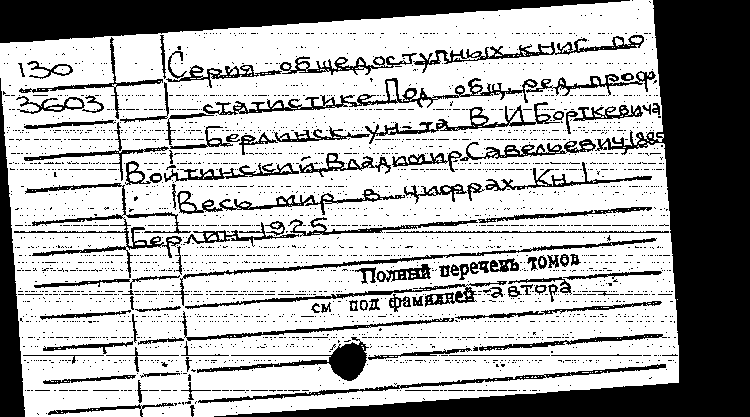 130 Серия общедоступных книг по
3603 статистике Под общ. ред. проф.
Берлинск. ун-та В.И Борткевича
Войтинский, Владимир Савельевич, 1885
Весь мир в цифрах Кн 1.
Берлин, 1925.
Полный перечень томов
см под фамилией автора